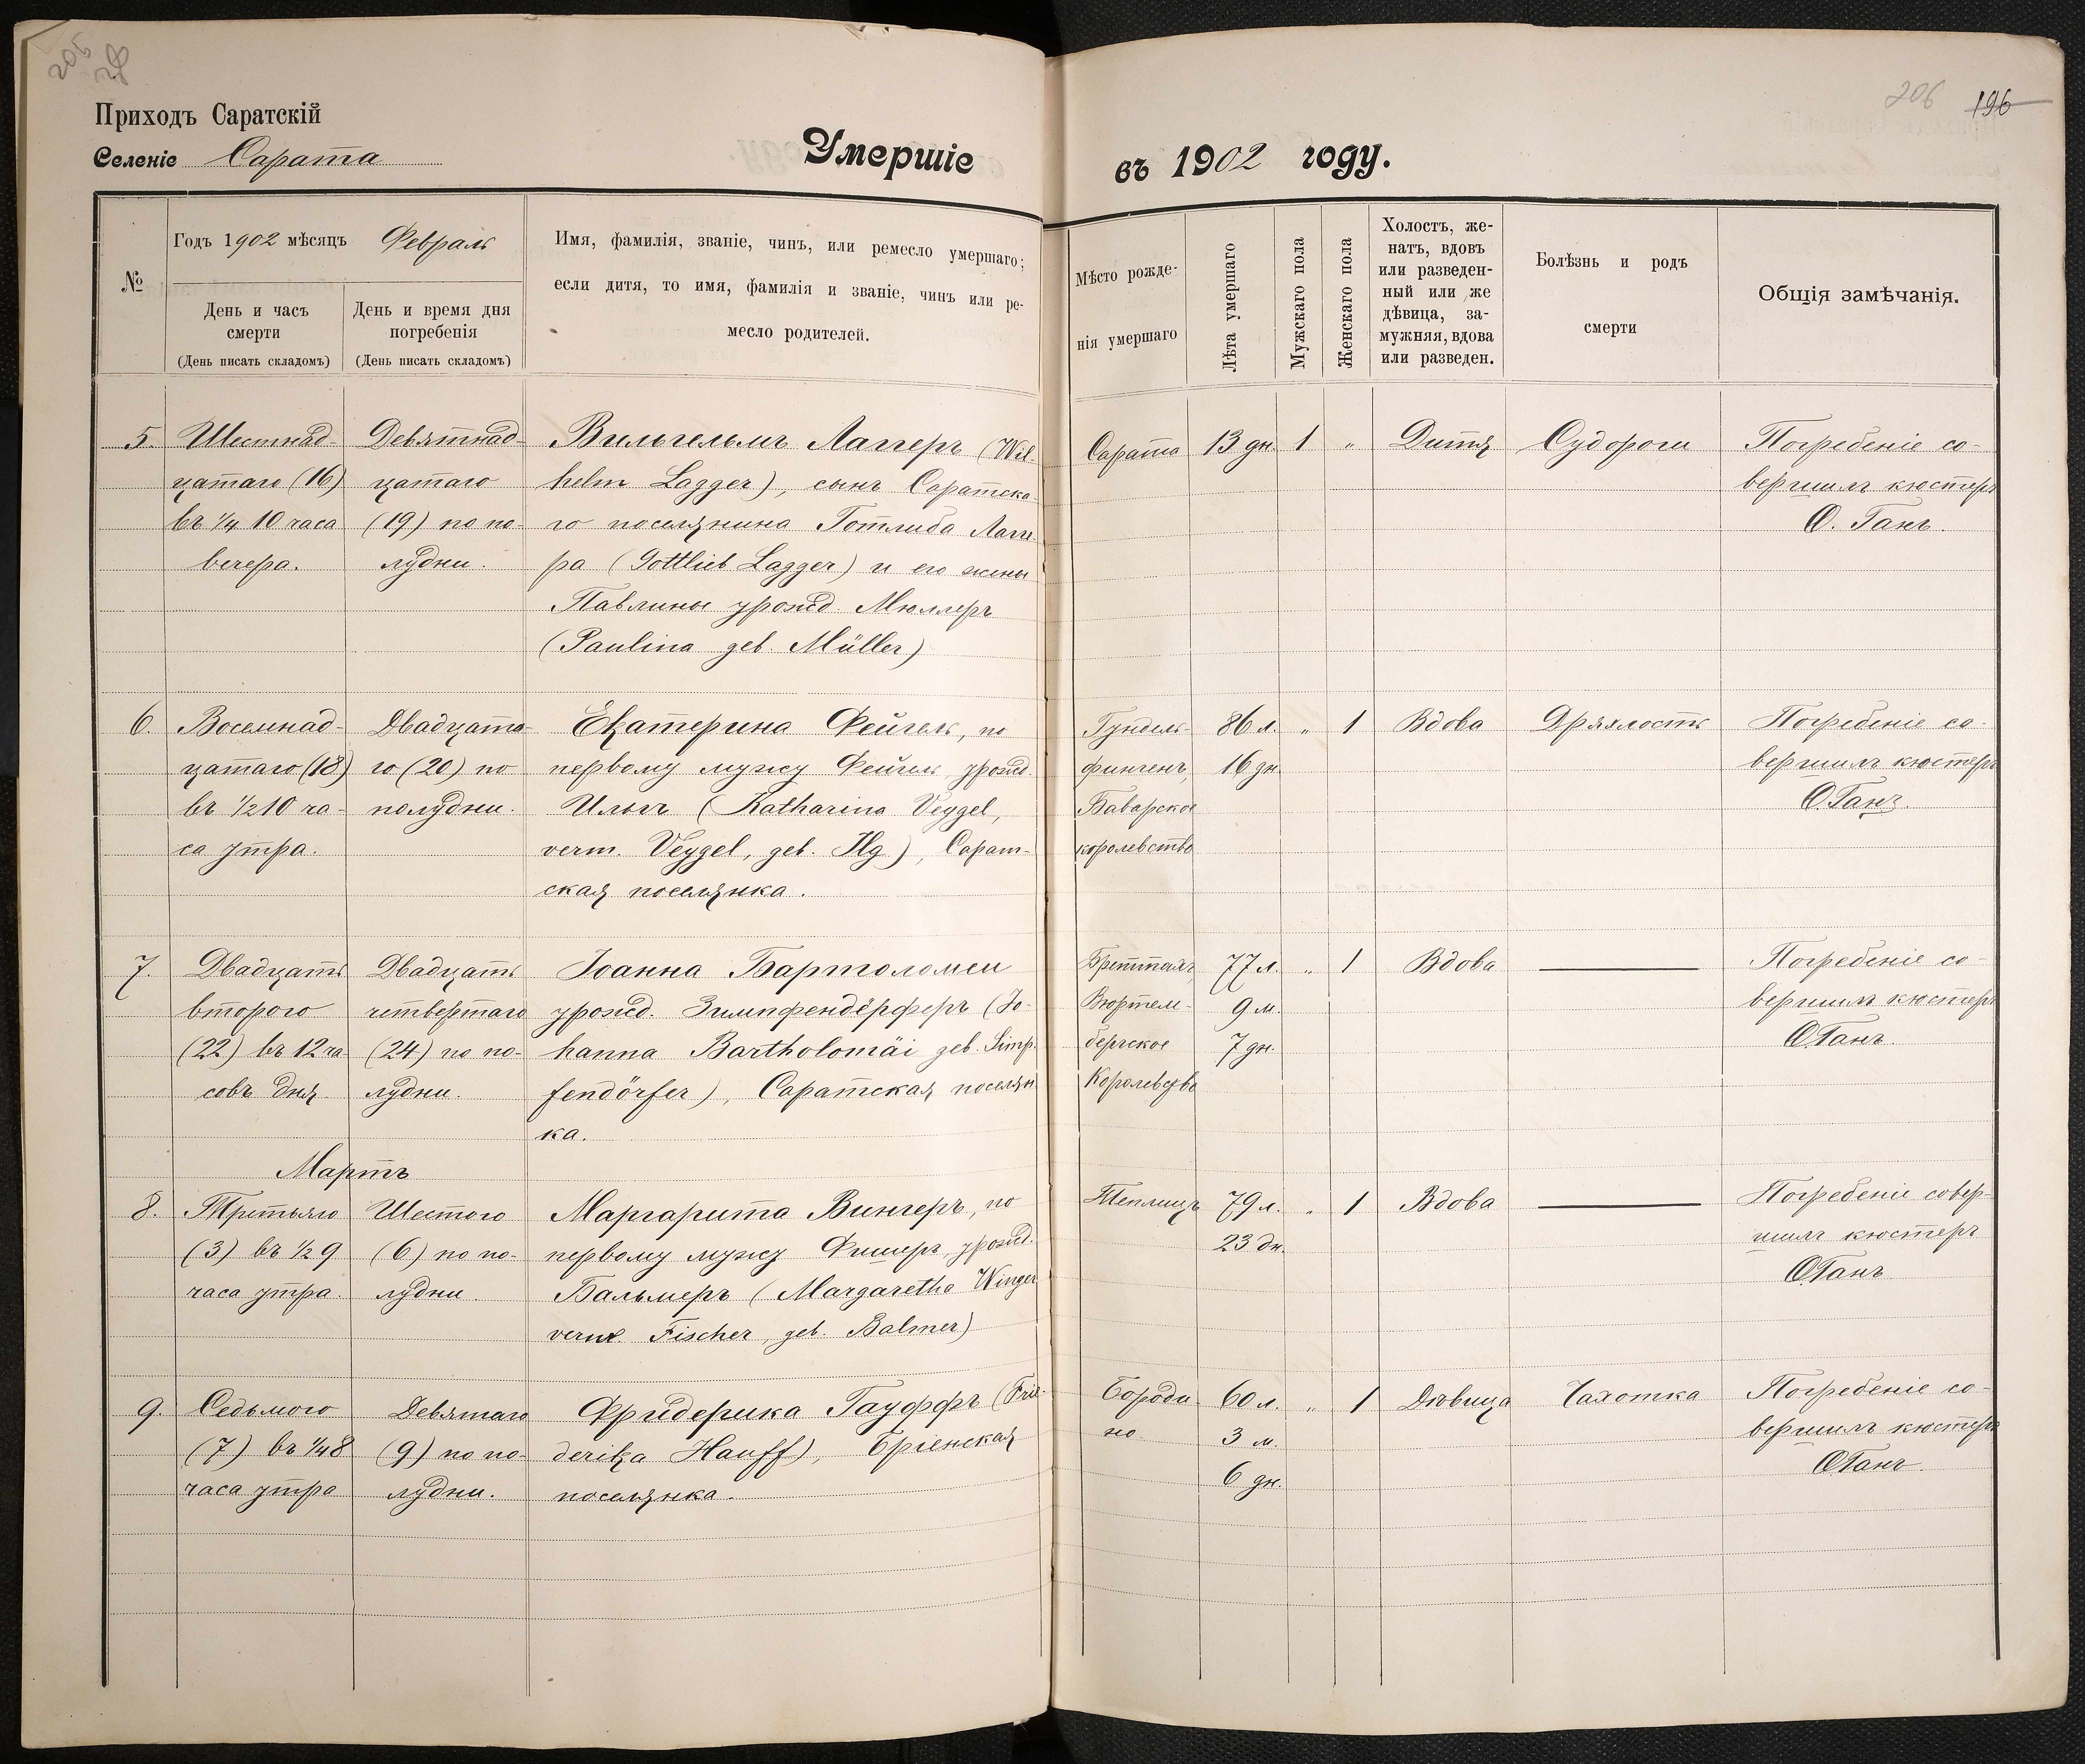 206
196
Приходъ Саратскій
Селеніе Сарата
Умершіе
въ 1902 году.
№
Годъ 1902 мѣсяцъ Февраль
День и часъ
смерти
(День писать складомъ)
День и время дня
погребенія
(День писать складомъ)
Имя, фамилія, званіе, чинъ, или ремесло умершаго;
если дитя, то имя, фамилія и званіе, чинъ или ре-
месло родителей.
Мѣсто рожде-
нія умершаго
Лѣта умершаго
Мужскаго пола
Женскаго пола
Холостъ, же-
натъ, вдовъ
или разведен-
ный или же
дѣвица, за-
мужняя, вдова
или разведен.
Болѣзнь и родъ
смерти
Общія замѣчанія.
5.
Шестнад-
цатаго (16)
въ 1/4 10 часа
вечера.
Девятнад-
цатаго
(19) по по-
лудни.
Вильгельмъ Лаггеръ (Wil-
helm Lagger), сынъ Саратска-
го поселянина Готлиба Лагге-
ра (Gottlieb Lagger) и его жены
Павлины урожд. Мюллеръ
(Paulina geb. Müller)
Сарата
13 дн.
1
"
Дитя
Судороги
Погребеніе со-
вершилъ кюстеръ
О. Ганъ.
6.
Восемнад-
цатаго (18)
въ 1/2 10 ча-
са утра.
Двадцата-
го (20) по
полудни.
Екатерина Фейгель, по
первому мужу Фейгель, урожд.
Ильгъ (Katharina Veygel,
verm. Veygel, geb. Ilg), Сарат-
ская поселянка.
Гундель-
фингенъ,
Баварское
королевство
86 л.
16 дн.
"
1
Вдова
Дряхлость
Погребеніе со-
вершилъ кюстеръ
О. Ганъ.
7.
Двадцать
второго
(22) въ 12 ча-
совъ дня
Двадцать
четвертаго
(24) по по-
лудни.
Іоанна Бартоломеи
урожд. Зимпфендёрферъ (Jo-
hanna Bartholomäi geb. Simp-
fendörfer), Саратская поселян-
ка.
Вюртем-
бергское
Королевство
77 л.
9 м.
7 дн.
"
1
Вдова
Погребеніе со-
вершилъ кюстеръ
О. Ганъ
Мартъ
8.
Третьяго
(3) въ 1/2 9
часа утра.
Шестого
(6) по по-
лудни
Маргарита Вингеръ, по
первому мужу Фишеръ, урожд.
Бальмеръ (Margaretha Winger
verw. Fischer, geb. Balmer)
Теплицъ
79 л.
23 дн.
"
1
Вдова
Погребеніе совер-
шилъ кюстеръ
О. Ганъ
9.
Седьмого
(7) въ 1/4 8
часа утра
Девятаго
(9) по по-
лудни.
Фридерика Гауффъ (Frie-
derika Hauff), Бріенская
поселянка.
Бороди
но
60 л.
3 м.
6 дн.
"
1
Дѣвица
Чахотка
Погребеніе со-
вершилъ кюстеръ
О. Ганъ.